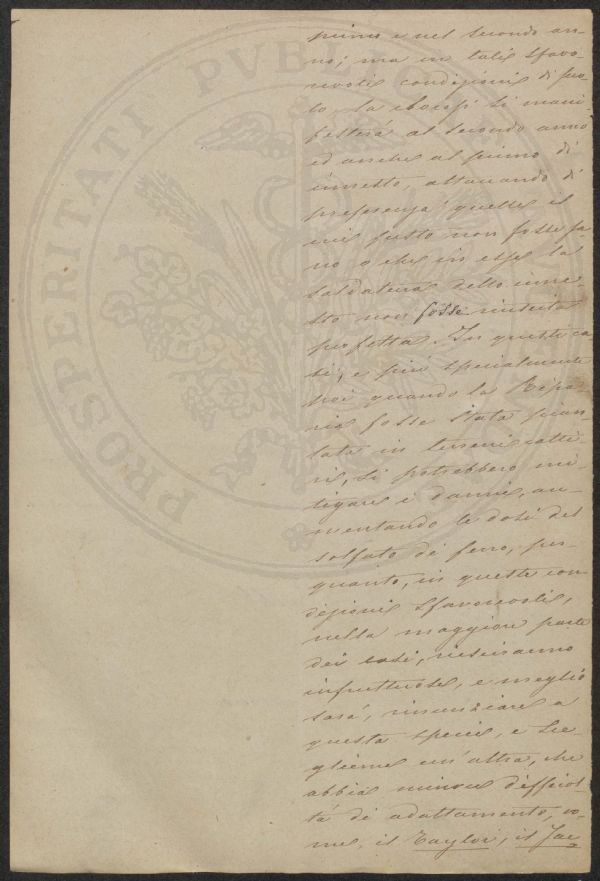 PROSPERITATI PVBLICAE
primo e nel secondo an-
no; ma in tali sfavo-
revoli condizioni di suo-
lo, la clorosi si mani-
festerà al secondo anno
ed anche al primo di
innesto, attaccando di
preferenza quelle il
cui fusto non fosse sa-
no o che in esse la
saldatura dello inne-
sto non fosse riuscita
perfetta. In questi ca-
si, e più specialmente
poi quando la Ripa-
ria fosse stata pian-
tata in terreni catti-
vi, si potrebbero mi-
tigare i danni, au-
mentando le dosi del
solfato di ferro, per
quanto, in queste con
dizioni sfavorevoli,
nella maggior parte
dei casi, riusciranno
infruttuose, e meglio
sarà, rinunziare a
questa specie, e sce-
glierne un'altra, che
abbia minore difficol-
tà di adattamento, co-
me, il Taylor, il Jac=